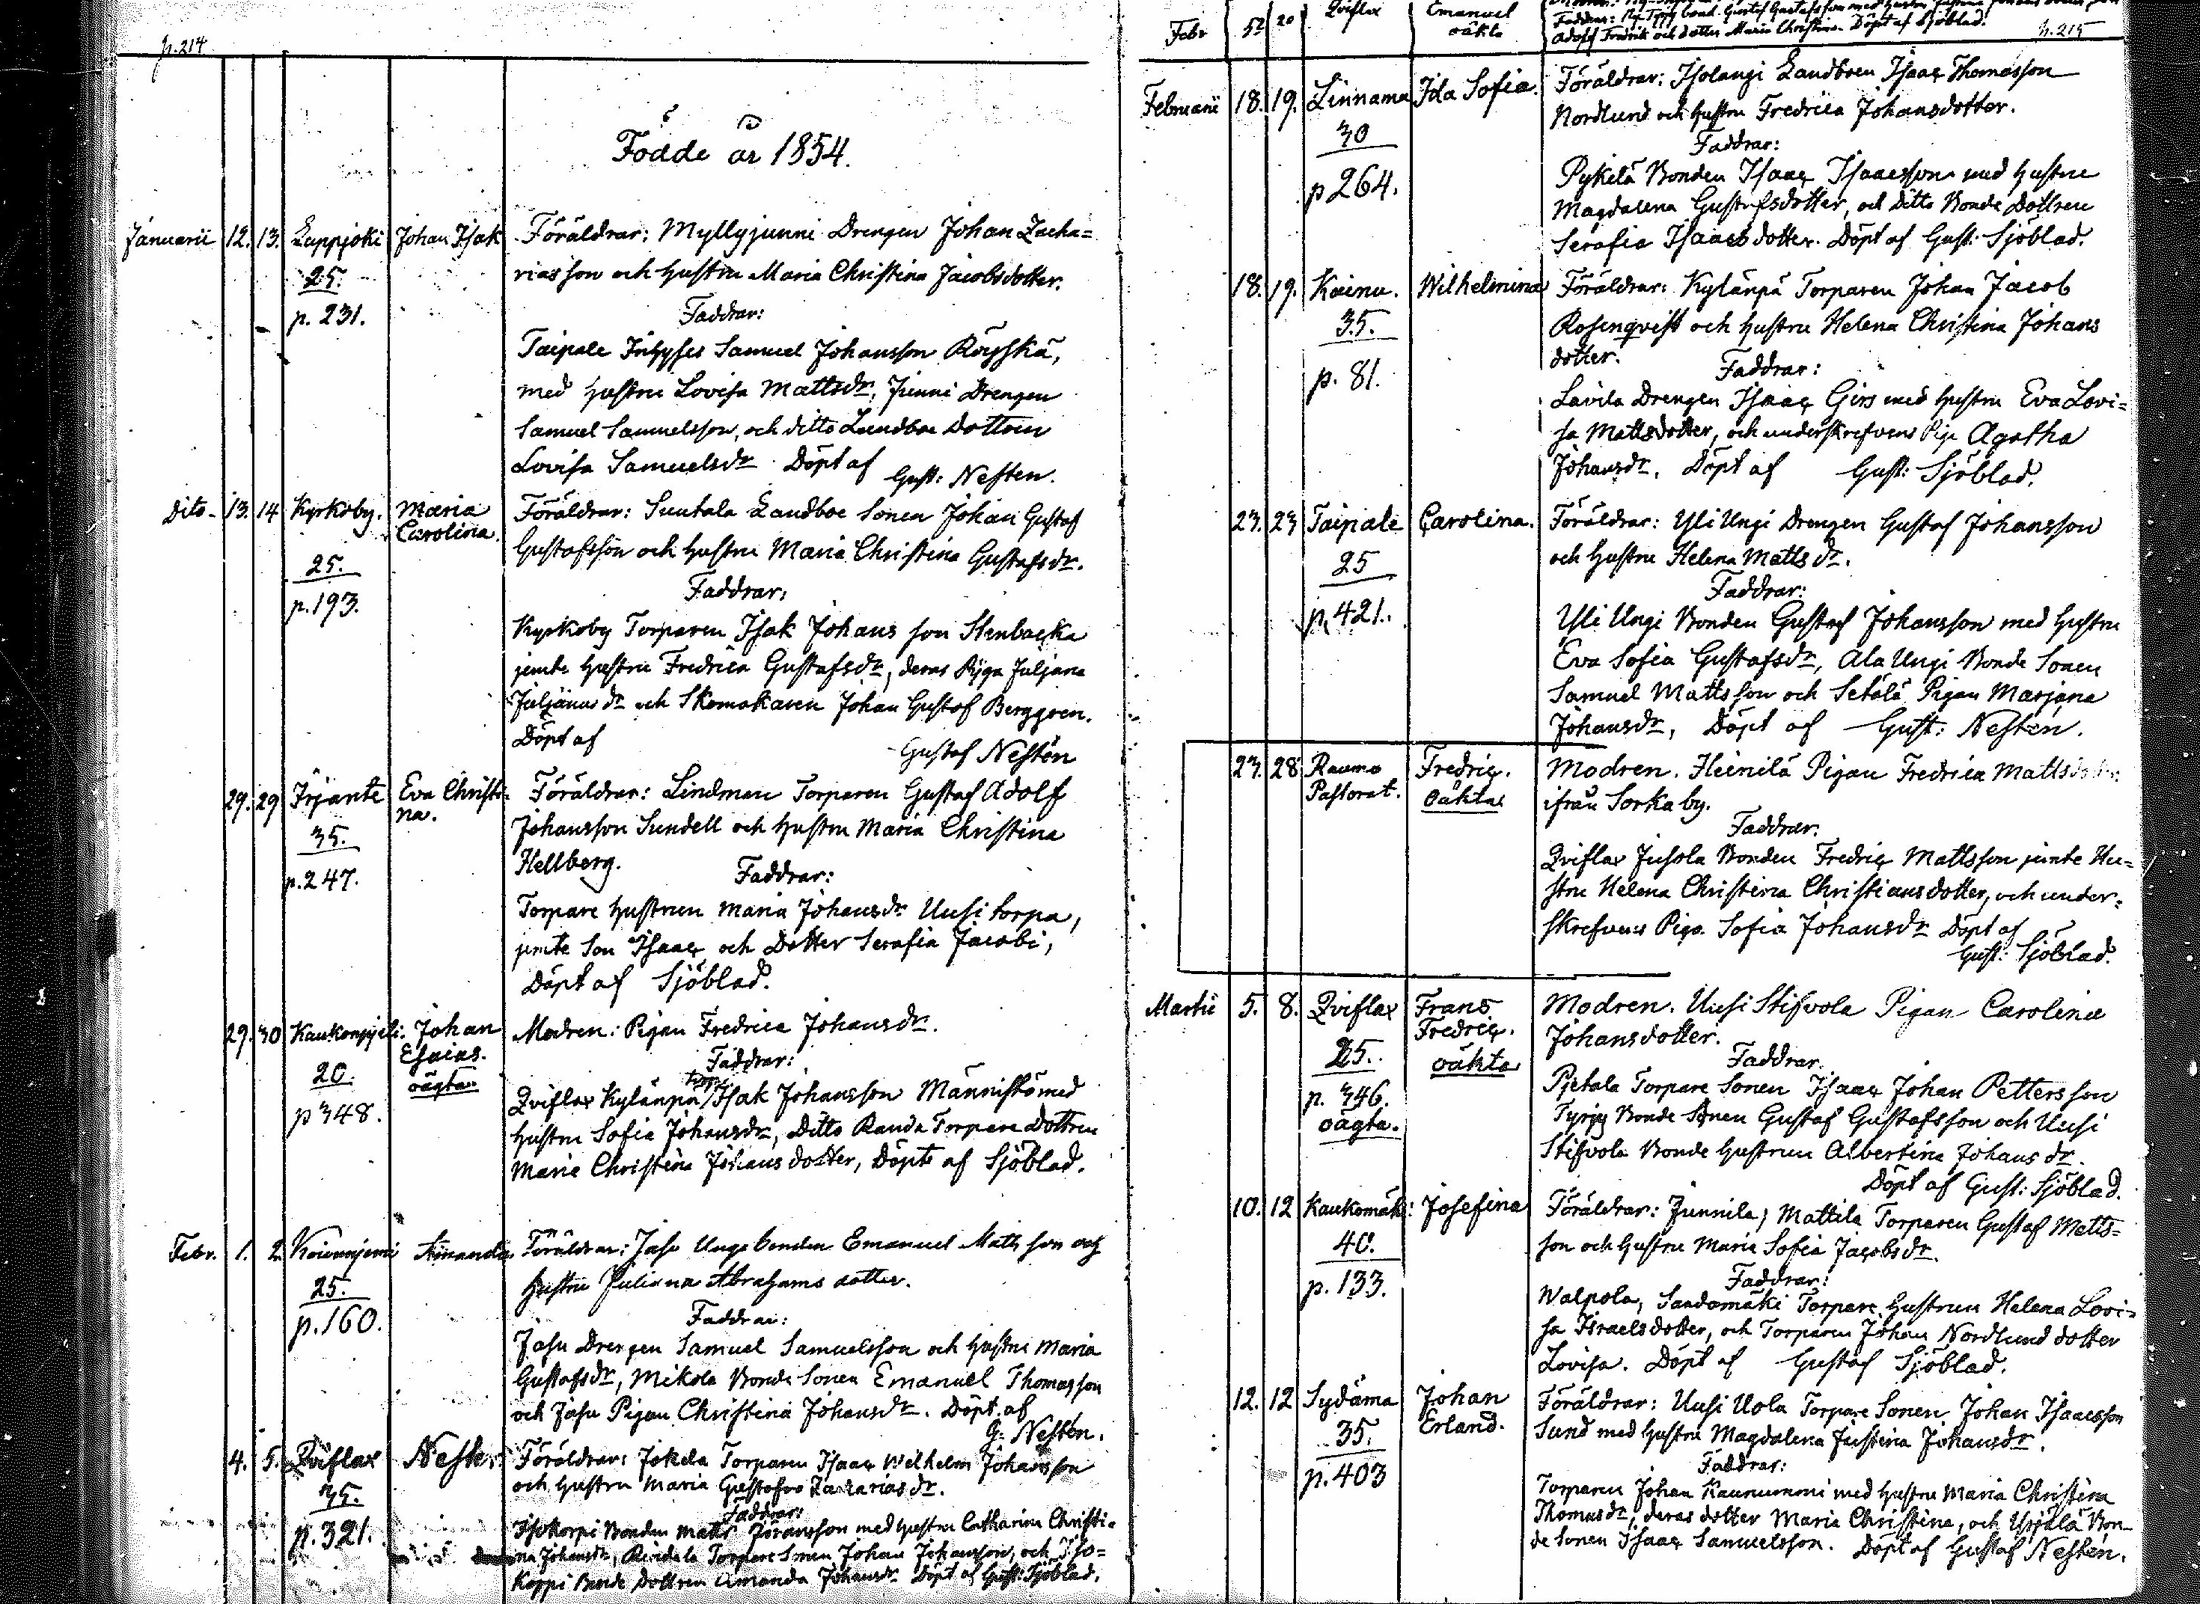 p. 214
Födde år 1854.
Januarii 12. 13. Lappjoki Johan Isak Föräldrar: Myllyjunni Drengen Johan Zacha=
25. riasson och hustru Maria Christina Jacobsdotter.
p. 231. Faddrar:
Taipale Inhyses Samuel Johansson Röyskä,
med hustru Lovisa Mattsdr, Junni Drengen
Samuel Samuelsson, och ditto Landboe Dottren
Lovisa Samuelsdr. Döpt af Gust: Nestén.
Dito- 13. 14 Kyrkoby. Maria Föräldrar: Suutala Landboe Sonen Johan Gustaf
Carolina. Gustafsson och hustru Maria Christina Gustafsdr.
25. Faddrar:
p. 193.
Kyrkoby Torparen Isak Johans son Stenbacka
jemte hustru Fredrica Gustafsdr, deras Piga Juljana
Juljänus dr och Skomakaren Johan Gustaf Berggren.
Döpt af Gustaf Nestén
29. 29 Irjante Eva Christi Föräldrar: Lindman Torparen Gustaf Adolf
na.
35. Johansson Sundell och hustru Maria Christina
Hellberg. Faddrar:
p. 247.
Torpare hustrun Maria Johansdr Uusitorpa,
jemte Son Isaac och Dotter Serafia Jacobi,
Döpt af Sjöblad.
29. 30 Kaukompjeli: Johan Modren: Pigan Fredrica Johansdr.
Esaias. Faddrar:
20. oägta.
p 348. Qviflax Kylänpä torp. Isak Johansson Männistö med
hustru Sofia Johansdr, Ditto Randa Torpare Dottren
Maria Christina Johansdotter, Döpte af Sjöblad.
Febr. 1. 2. Koivunjemi Amanda Föräldrar: Jasu Unge bonden Emanuel Mattsson och
25. hustru Juliana Abrahams dotter.
p. 160. Faddrar:
Jasu Drengen Samuel Samuelsson och hustru Maria
Gustafsdr, Mikola Bonde Sonen Emanuel Thomasson
och Jasu Pigan Christina Johansdr. Döpt af
G: Nestén.
4. 5. Qviflax Föräldrar: Jokela Torparen Isaac Wilhelm Johansson
35. och hustru Maria Gustafva Zacharias dr.
p. 321. Faddrar:
Isokorpi Bonden Matts Göransson med hustru Catharina Christi-
na Johansdr, Torpare Sonen Johan Johansson, och Iso=
Koppi Bonde Dottren Amanda Johansdr Döpt af Gust: Sjöblad.
Febr 20 Qviflax Emanuel
oäkta
Adolf Fredrik och dotter Maria Christina. Döpt af Sjöblad.
p. 215
Februarii 18. 19. Linnama Ida Sofia. Föräldrar: Isolangi Landboen Isaac Thomasson
Nordlund och hustru Fredrica Johansdotter.
30 Faddrar:
p 264. Pykelä Bonden Isaac Isaacsson med hustru
Magdalena Gustafsdotter, och Ditto Bonde Dottren
Serafia Isaacsdotter. Döpt af Gust: Sjöblad.
18. 19. Koinu. Wilhelmina Föräldrar: Kylänpä Torparen Johan Jacob
35. Rosenqvist och hustru Helena Christina Johans
dotter. Faddrar:
p. 81.
Lavila Drengen Isaac Girs med hustru Eva Lovi=
sa Mattsdotter, och underskrefvens Piga Agatha
Johansdr. Döpt af Gust: Sjöblad.
23. 23 Taipale Carolina. Föräldrar: Yli Ungi Drengen Gustaf Johansson
25 och hustru Helena Matts dr.
Faddrar:
p. 421. Yli Ungi Bonden Gustaf Johansson med hustru
Eva Sofia Gustafsdr, Ala Ungi Bonde Sonen
Samuel Mattsson och Setälä Pigan Marjana
Johansdr, Döpt af Gust: Nestén.
23. 28 Raumo Fredric. Modren. Heinilä Pigan Fredrica Mattsdotter
Pastorat. oäkta ifrån Sorkaby.
Faddrar:
Qviflax Jusola Bonden Fredric Mattsson jemte Hu=
stru Helena Christina Christiansdotter, och under=
skrefvens Piga Sofia Johansdr Döpt af
Gust: Sjöblad.
Martii 5. 8. Qviflax Frans Modren. Uusi Stifvola Pigan Carolina
Fredric. Johansdotter.
25. oäkta Faddrar.
p. 346. Pietala Torpare Sonen Isaac Johan Pettersson
oägta. Tyrjy Bonde Sonen Gustaf Gustafsson och Uusi
Stifvola Bonde hustrun Albertina Johans dr.
Döpt af Gust: Sjöblad.
10. 12 Kaukomäk: Josefina Föräldrar: Junnila, Mattila Torparen Gustaf Matts=
40. son och hustru Maria Sofia Jacobsdr.
p. 133. Faddrar:
Walpola, Sandamäki Torpare hustrun Helena Lovi=
sa Israelsdotter, och Torparen Johan Nordlund dotter
Lovisa. Döpt af Gustaf Sjöblad.
12. 12 Sydäma Johan Föräldrar: Uusi Uola Torpare Sonen Johan Isaacsson
35. Erland. Sund med hustru Magdalena Justina Johansdr.
p. 403 Faddrar:
Torparen Johan Kaunummi med hustru Maria Christina
Thomasdr, deras dotter Maria Christina, och Uppälä Bon-
de Sonen Isaac Samuelsson. Döpt af Gustaf Nestén.